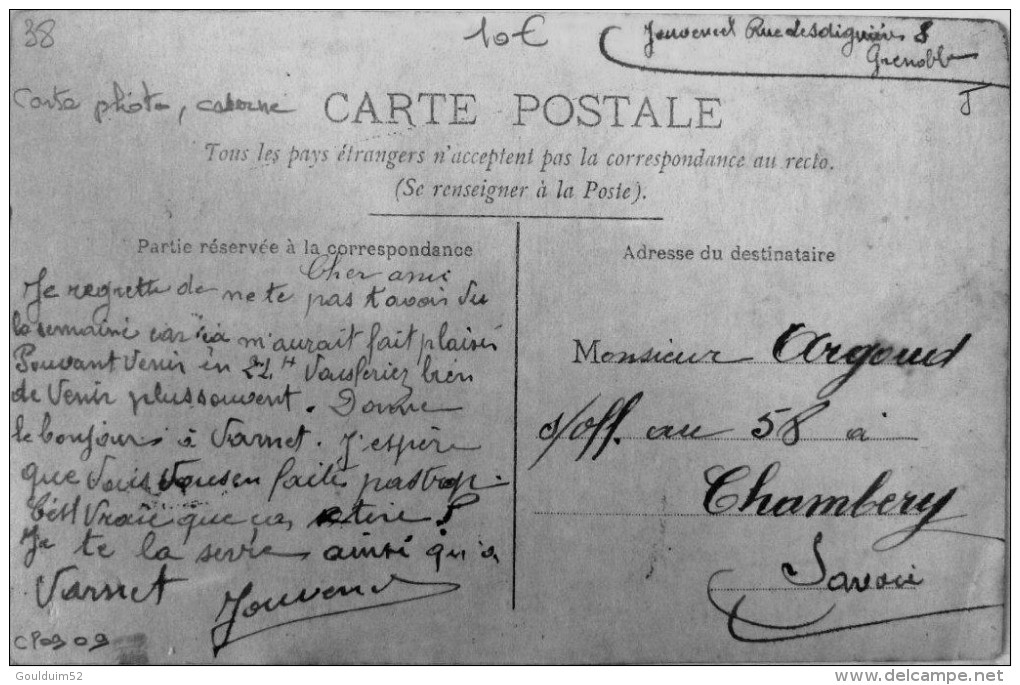 38
10€
Jouvencel Rue Lesdiguières 8
Grenoble
Carte photo, caserne
CARTE POSTALE
Tous les pays étrangers n'acceptent pas la correspondance au recto.
(Se renseigner à la Poste).
Partie réservée à la correspondance
Adresse du destinataire
Cher ami
Je regrette de ne te pas t'avoir vu
la semaine car ça m'aurait fait plaisir
Pouvant venir en 24 H vous feriez bien
de venir plus souvent. Donne
le bonjour à Varnet. J'espère
que vous vous en faite pas trop.
C'est vraie que ça
Je te la serre ainsi qu'a
Varnet
Jouvencel
Monsieur Argoud
s/off. au 58 à
Chambery
Savoie
CP09 09
Goulduim52
delcampe.net